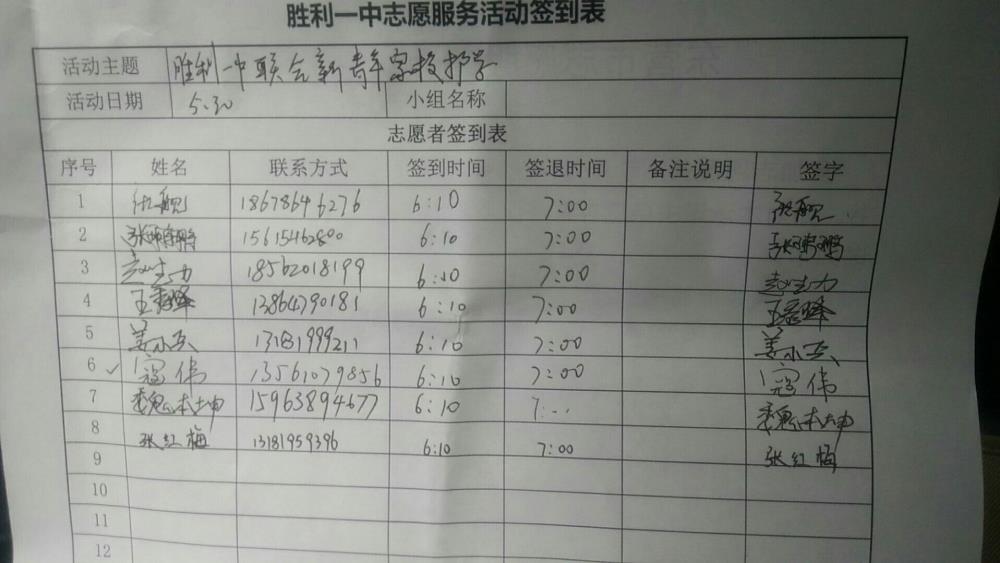 胜利一中志愿服务活动签到表
活动主题 胜利一中联合新青年学校护学
活动日期 5.30 小组名称
志愿者签到表
序号 姓名 联系方式 签到时间 签退时间 备注说明 签字
1 18678646276 6:10 7:00
2 张 15615462800 6:10 7:00 张
3 赵志力 18562018199 6:10 7:00 赵志力
4 王 13864790181 6:10 7:00 王
5 姜小兵 13181999211 6:10 7:00 姜小兵
6 寇伟 13561079856 6:10 7:00 寇伟
7 魏本坤 15963894677 6:10 7:.. 魏本坤
8 张红梅 13181959396 6:10 7:00 张红梅
9
10
11
12